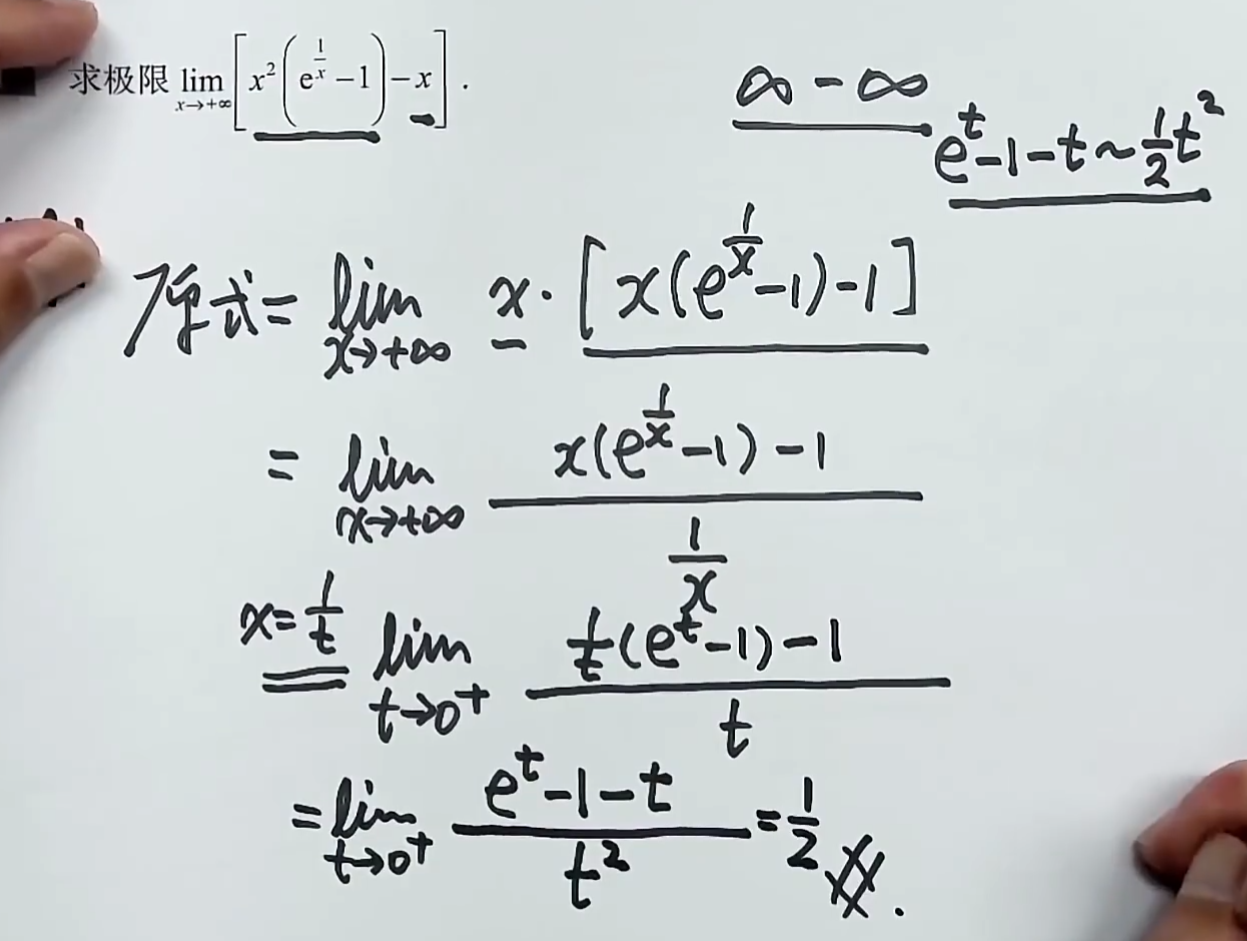 求极限 lim_{x→+∞} [x²(e^{1/x} − 1) − x] .
∞ − ∞
e^t − 1 − t ~ 1/2 t²
原式 = lim_{x→+∞} x · [x(e^{1/x} − 1) − 1]
= lim_{x→+∞} (x(e^{1/x} − 1) − 1) / (1/x)
x = 1/t lim_{t→0⁺} (1/t (e^t − 1) − 1) / t
= lim_{t→0⁺} (e^t − 1 − t) / t² = 1/2 .